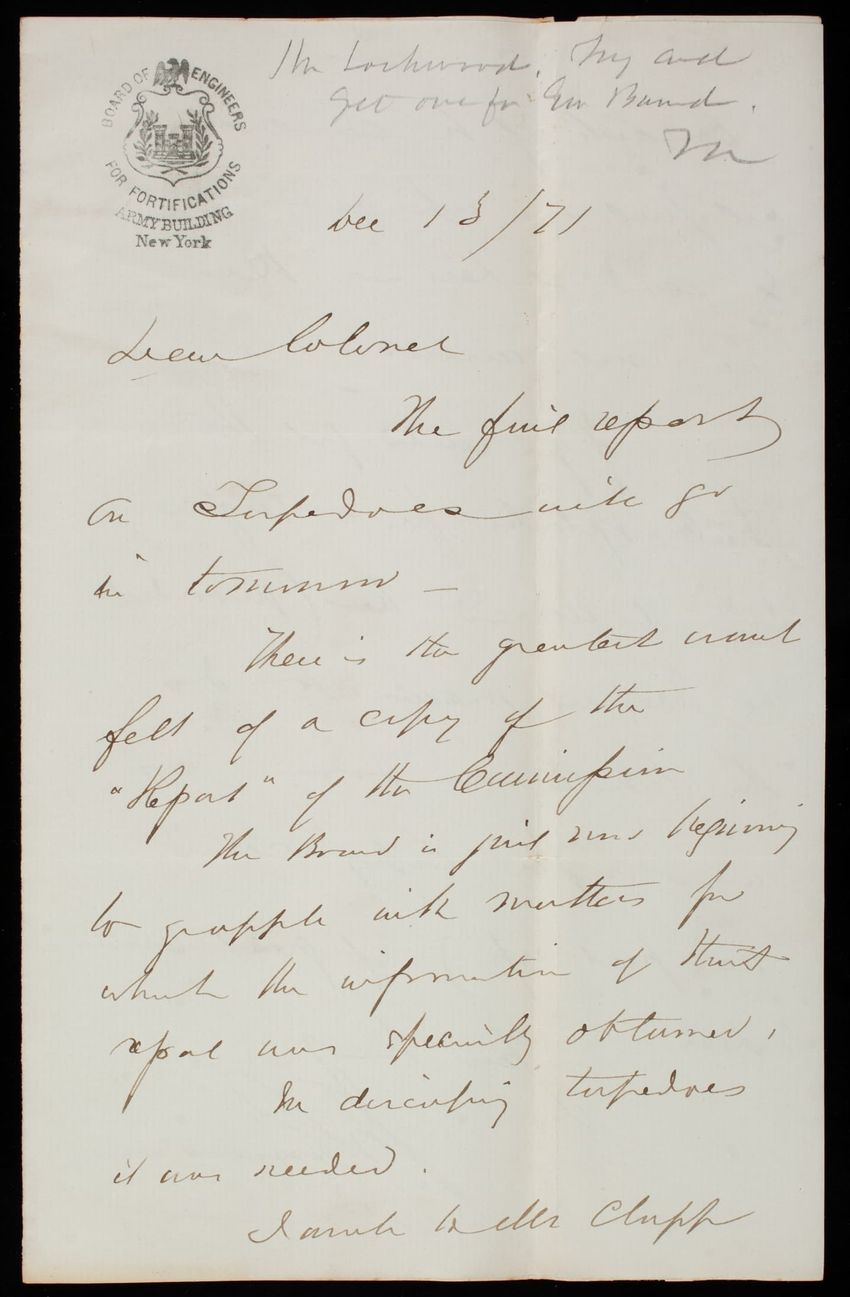 BOARD OF ENGINEERS
FOR FORTIFICATIONS
ARMY BUILDING
New York
Mr Lockwood, Try and
get one for Gen Barnard.
Dec 13/71
Dear Colonel
The final report
on Torpedoes will go
in tomorrow —
There is the greatest want
felt of a copy of the
"Report" of the Commission
The Board is just now beginning
to grapple with matters for
which the information of that
report was specially obtained,
In discussing torpedoes
it was needed.
I wrote to Mr Clapp